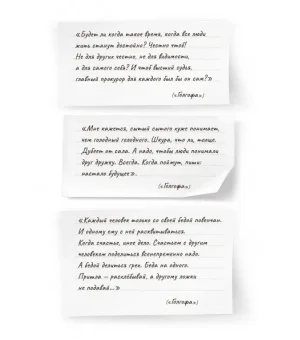 «Будет ли когда такое время, когда все люди
жить станут достойно? Честно чтоб!
Не для других честно, не для видимости,
а для самого себя? И чтоб высший судья,
главный прокурор для каждого был бы он сам?»
(«Голгофа»)
«Мне кажется, сытый сытого хуже понимает,
чем голодный голодного. Шкура, что ли, толще.
Дубеет от сала. А надо, чтобы люди понимали
друг дружку. Всегда. Когда поймут, пиши:
настало будущее».
(«Голгофа»)
«Каждый человек только со своей бедой повенчан.
И одному ему с ней расквитываться.
Когда счастье, иное дело. Счастьем с другим
человеком поделиться всенепременно надо.
А бедой делиться грех. Беда на одного.
Пришла — расхлёбывай, а другому ложки
не подавай...»
(«Голгофа»)